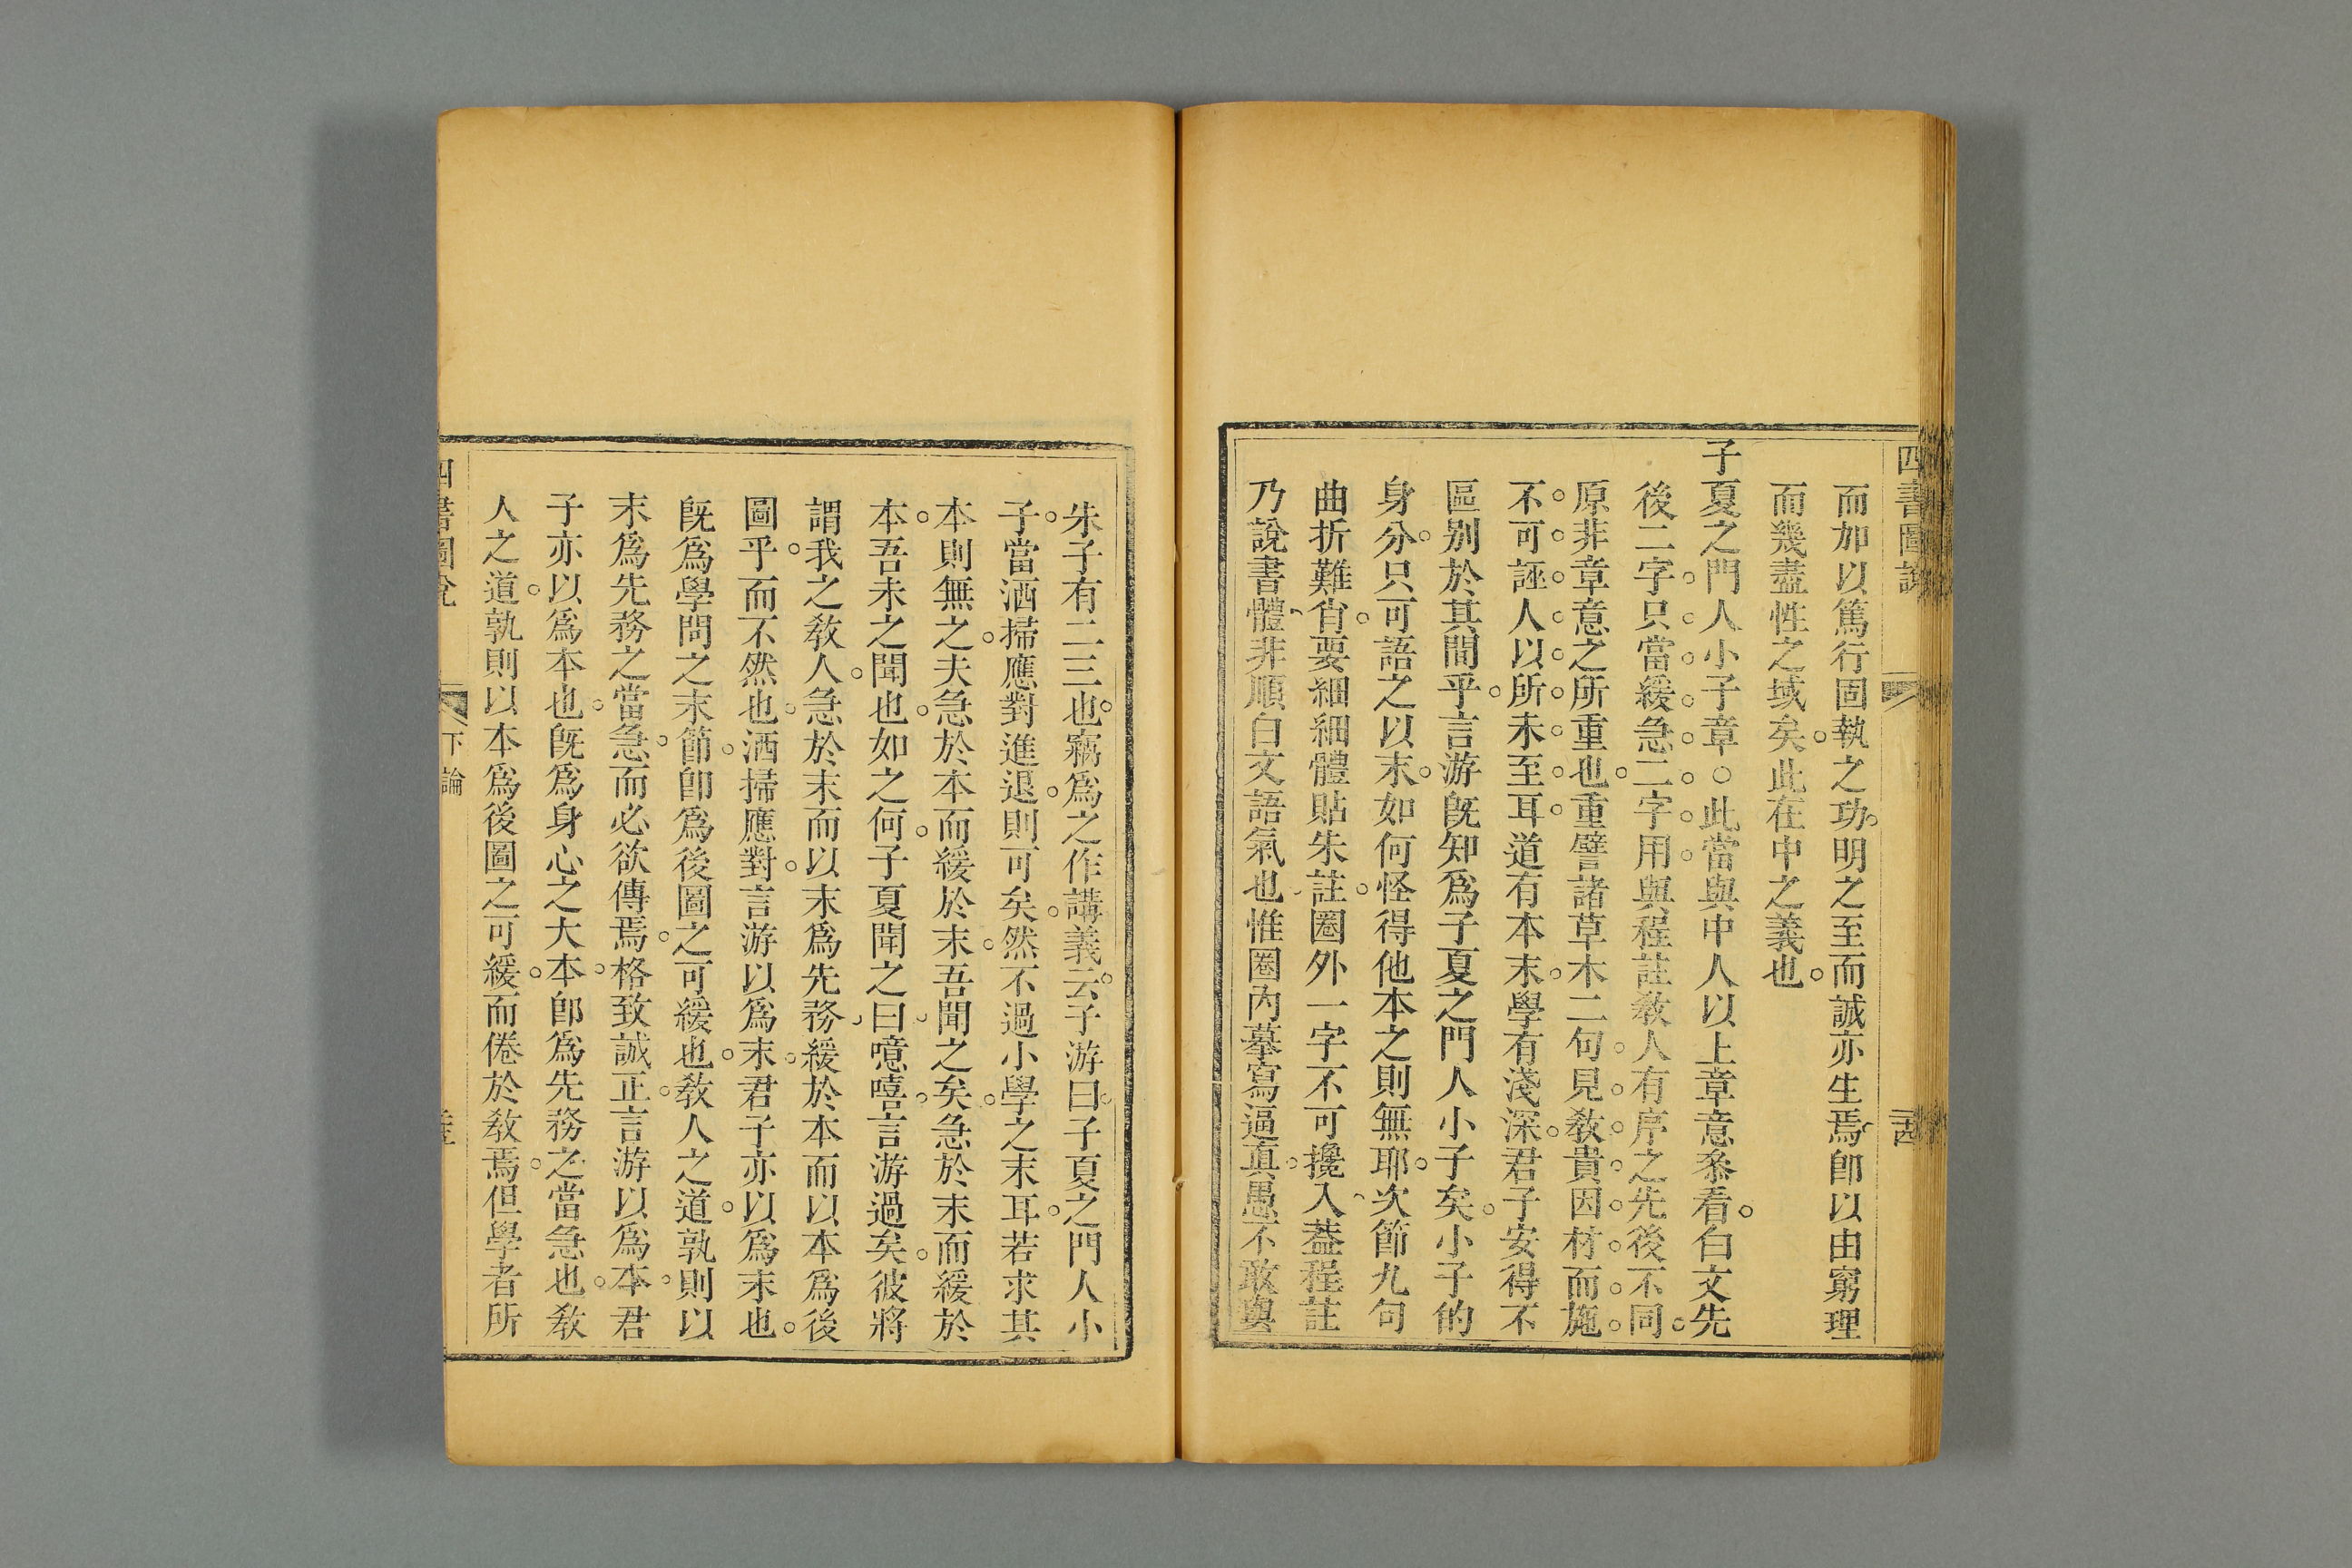 四書圖說
而加以篤行固執之功明之至而誠亦生焉卽以由窮理
而幾盡性之域矣此在中之義也
子夏之門人小子章○此當與中人以上章意叅看白文先
後二字只當緩急二字用與程註敎人有序之先後不同
原非章意之所重也重譬諸草木二句見敎貴因材而施
不可誣人以所未至耳道有本末學有淺深君子安得不
區别於其間乎言游旣知爲子夏之門人小子矣小子的
身分只可語之以末如何怪得他本之則無耶次節九句
曲折難肖要細細體貼朱註圈外一字不可攙入葢程註
乃說書體非順白文語氣也惟圈內摹寫逼眞愚不敢與
朱子有二三也竊爲之作講義云子游曰子夏之門人小
子當洒掃應對進退則可矣然不過小學之末耳若求其
本則無之夫急於本而緩於末吾聞之矣急於末而緩於
本吾未之聞也如之何子夏聞之曰噫嘻言游過矣彼將
謂我之敎人急於末而以末爲先務緩於本而以本爲後
圖乎而不然也洒掃應對言游以爲末君子亦以爲末也
旣爲學問之末節卽爲後圖之可緩也敎人之道孰則以
末爲先務之當急而必欲傳焉格致誠正言游以爲本君
子亦以爲本也旣爲身心之大本卽爲先務之當急也敎
人之道孰則以本爲後圖之可緩而倦於敎焉但學者所
四書圖說 下論